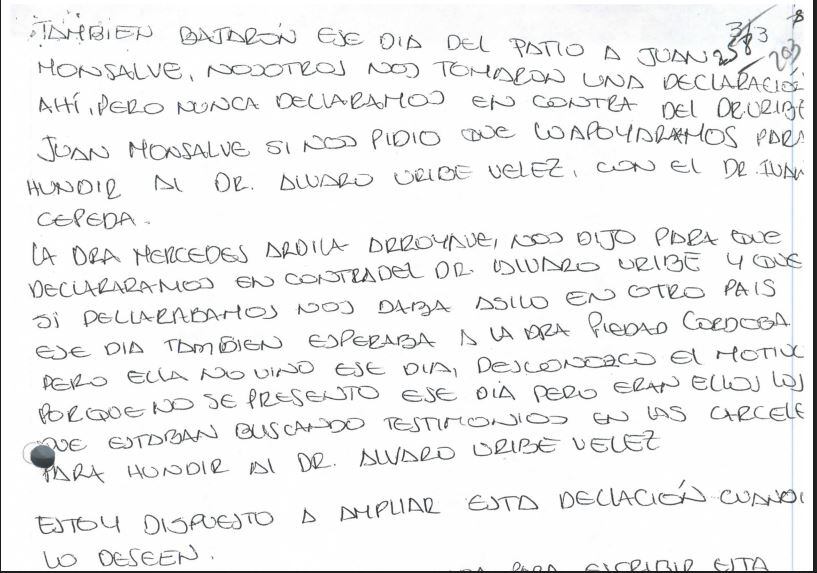 TAMBIEN BAJARÓN ESE DIA DEL PATIO A JUAN
MONSALVE, NOSOTROS NOS TOMARON UNA DECLARACIÓ
AHÍ, PERO NUNCA DECLARAMOS EN CONTRA DEL DR URIBE
JUAN MONSALVE SI NOS PIDIO QUE LO APOYARAMOS PARA
HUNDIR AL DR. ALVARO URIBE VELEZ, CON EL DR. IVAN
CEPEDA.
LA DRA MERCEDES ARDILA ARROYAVE, NOS DIJO PARA QUE
DECLARARAMOS EN CONTRA DEL DR. ALVARO URIBE Y QUE
SI DECLARABAMOS NOS DABA ASILO EN OTRO PAIS
ESE DIA TAMBIEN ESPERABA A LA DRA PIEDAD CORDOBA
PERO ELLA NO VINO ESE DIA, DESCONOZCO EL MOTIVO
PORQUE NO SE PRESENTO ESE DIA PERO ERAN ELLOS LOS
QUE ESTABAN BUSCANDO TESTIMONIOS EN LAS CARCELE
PARA HUNDIR AL DR. ALVARO URIBE VELEZ
ESTOY DISPUESTO A AMPLIAR ESTA DECLACIÓN CUANDO
LO DESEEN.
PARA ESCRIBIR ESTA